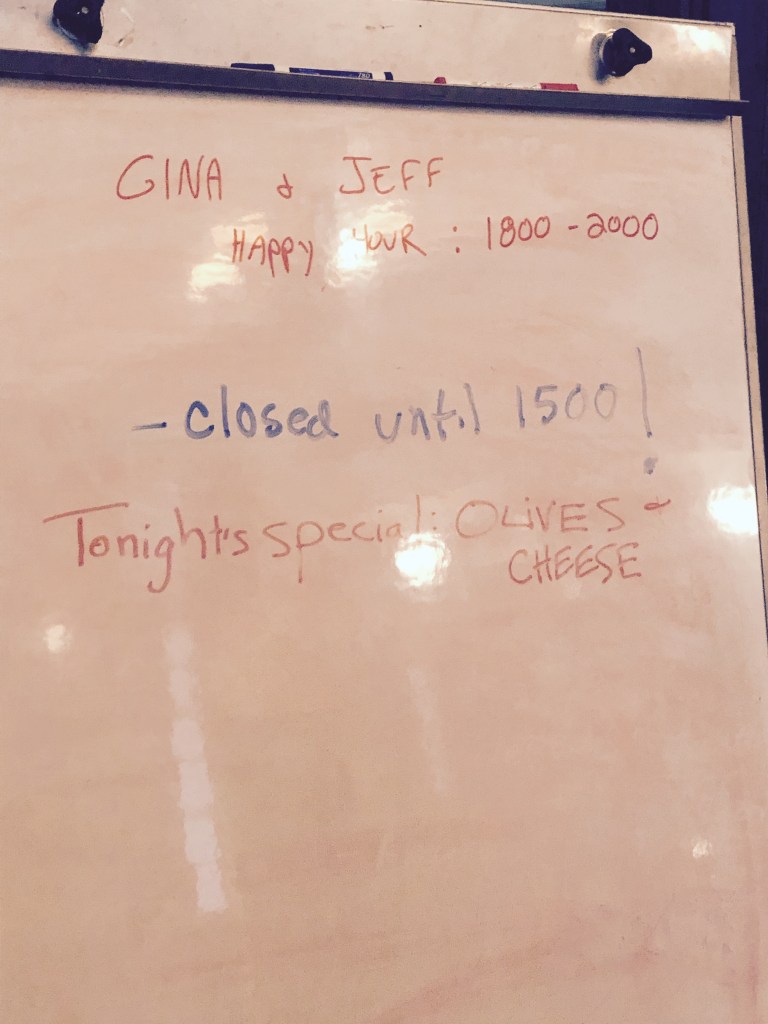 GINA & JEFF
HAPPY HOUR : 1800 - 2000
- closed until 1500 !
Tonight's special: OLIVES &
CHEESE